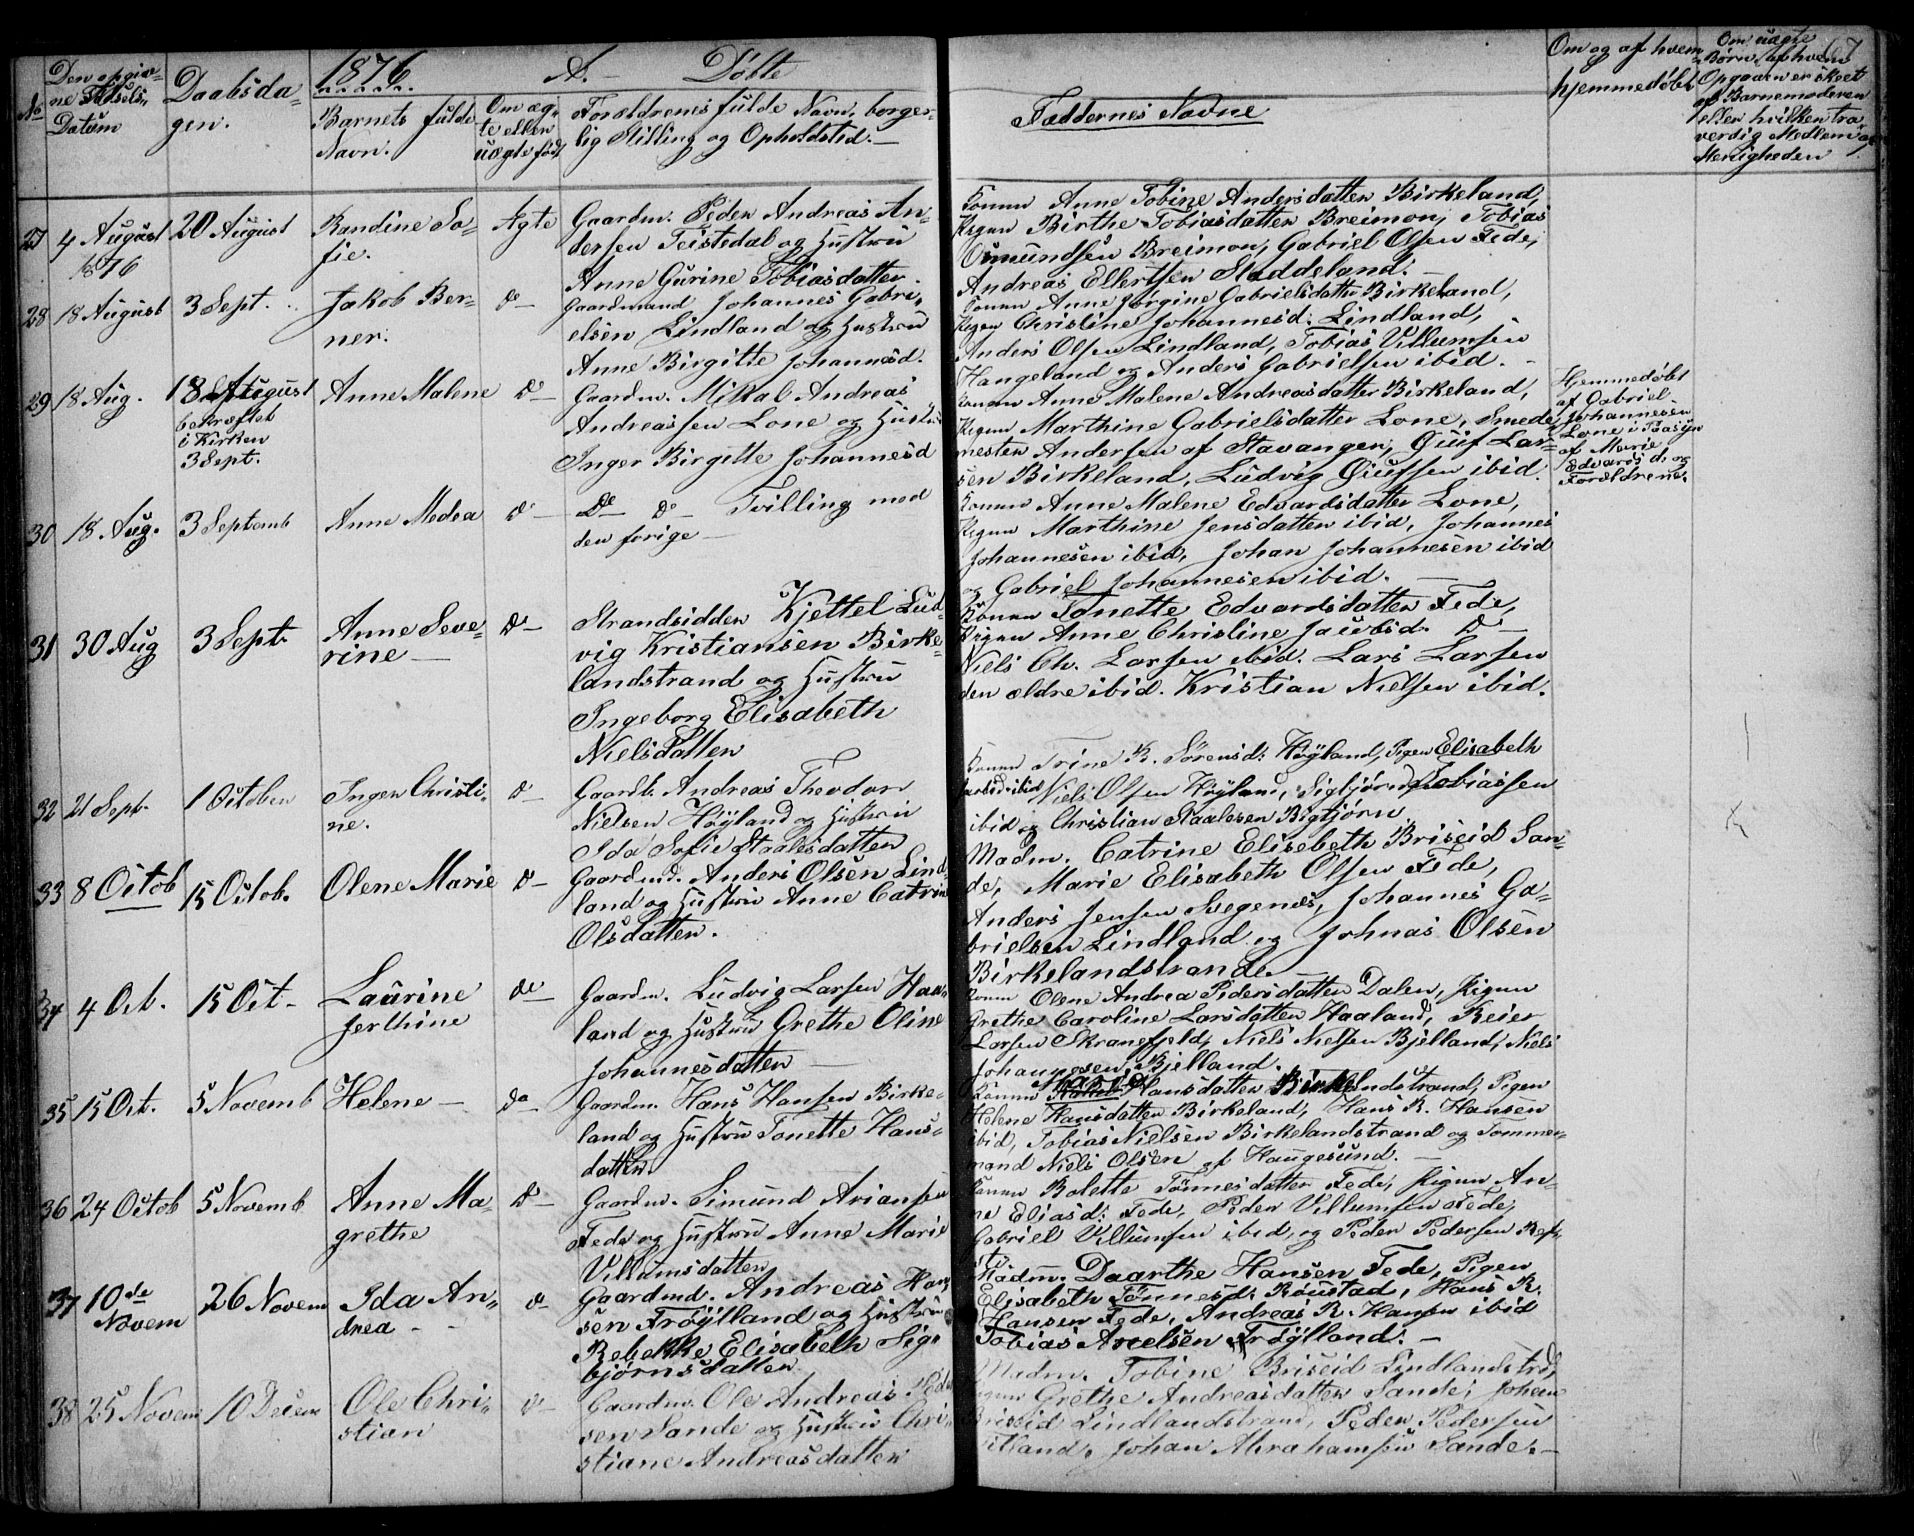 67
1876 A. Döbte
No
Den opgivne Fødsels-Datum
Daabsdagen.
Barnets fulde Navn.
Om ægte eller uægte født
Forældrenes fulde Navn, borgerlig Stilling og Opholdsted.
Faddernes Navne
Om og af hvem hjemmedøbt
Om uægte Børn, af hvem Opgaven er skeet af Barnemoderen eller hvilken troverdig Medlem af Menigheden
27 4 August 1876 20 August Randine Sofie. Ægte
Gaardm. Peder Andreas An-
dersen Teistedal og Hustru
Anne Gurine Tobiasdatter
Konen Anne Tobine Andersdatter Birkeland,
Pigen Birthe Tobiasdatter Breimon, Tobias
Osmundsen Breimon, Gabriel Olsen Fede,
Andreas Ellertsen Staddeland.
28 18 August 3 Sept. Jakob Berner. do
Gaardmand Johannes Gabri-
elsen Lindland og Hustru
Anne Birgitte Johannesd.
Konen Anne Jorgine Gabrielsdatter Birkeland,
Pigen Christine Johannesd. Lindland,
Anders Olsen Lindland, Tobias Villumsen
Hangeland og Anders Gabrielsen ibid.
29 18 Aug. 18 August bekræftet i Kirken 3 Sept. Anne Malene do
Gaardm. Mikal Andreas
Andreassen Lone og Hustru
Inger Birgitte Johannesd
Konen Anne Malene Andreasdatter Birkeland,
Pigen Marthine Gabrielsdatter Lone, Smede-
mester Andersen af Stavanger, Guuf Lar-
sen Birkeland, Ludvig Guufsen ibid.
Hjemmedøbt
af Gabriel
Johannesen
Lone i Paasyn
af Marie
Edvardsd. og
Forældrene.
30 18 Aug. 3 Septemb Anne Medea do
Do do Tvilling med
den forige
Konen Anne Malene Edvardsdatter Lone,
Pigen Marthine Jensdatter ibid, Johannes
Johannesen ibid, Johan Johannesen ibid
og Gabriel Johannesen ibid.
31 30 Aug 3 Sept. Anne Severine do
Strandsidder Kjettel Lud-
vig Kristiansen Birke-
landstrand og Hustru
Ingeborg Elisabeth
Nielsdatter
Konen Tonette Edvardsdatter Fede,
Pigen Anne Christine Jacobsd. do
Niels Ch. Larsen ibid. Lars Larsen
den ældre ibid. Kristian Nielsen ibid.
32 21 Sept. 1 October Inger Christine. do
Gaardb. Andreas Theodor
Nielsen Høyland og Hustru
Ida Sofie Staalesdatter
Konen Trine R. Sörensd. Høyland, Pigen Elisabeth
Niels Olsen Høyland, Sigbjörn Tobiassen
ibid og Christian Staalesen Bigtjörn.
33 8 Octob 15 Octob. Olene Marie do
Gaardmd. Anders Olsen Lind-
land og Hustru Anne Catrine
Olsdatter.
Madm. Catrine Elisebeth Briseid San-
de, Marie Elisabeth Olsen Fede,
Anders Jensen Svegenes, Johannes Ga-
brielsen Lindland og Johnas Olsen
Birkelandstrande
34 4 Oct. 15 Oct. Laurine Jerthine do
Gaardm. Ludvig Larsen Haa-
land og Hustru Grethe Oline
Johannesdatter
Konen Olene Andrea Pedersdatter Dalen, Pigen
Grethe Caroline Larsdatter Haaland, Reier
Larsen Skranefjeld, Niels Nielsen Bjelland, Niels
Johannesen Bjelland.
35 15 Oct. 5 Novemb Helene do
Gaardm. Hans Hansen Birke-
land og Hustru Tonette Hans-
datter
Konen Hansdatter Birkelandstrand, Pigen
Helene Hansdatter Birkeland, Hans R. Hansen
ibid, Tobias Nielsen Birkelandstrand og Tømmer-
mand Niels Olsen af Haugesund.
36 24 Octob 5 Novemb Anne Magrethe do
Gaardm. Simund Ariansen
Fede og Hustru Anne Marie
Villumsdatter
Konen Bolette Tönnesdatter Fede, Pigen An-
ne Eliasd. Fede, Peder Villumsen Fede,
Gabriel Villumsen ibid, og Peder Pedersen Refs-
ti.
37 10de Novem 26 Novem Ida Andrea do
Gaardmd. Andreas Han-
sen Frøylland og Hustru
Rebekke Elisabeth Sig-
bjørnsdatter
Madm. Daarthe Hansen Fede, Pigen
Elisabeth Tönnesd. Røustad, Hans R.
Hansen Fede, Andreas R. Hansen ibid
Tobias Axelsen Frøylland.
38 25 Novem 10 Decem Ole Christian do
Gaardm. Ole Andreas Peder-
sen Sande og Hustru Chri-
stiane Andreasdatter
Madm. Tobine Briseid Lindlandstrd,
Pigen Grethe Andreasdatter Sande, Johan
Briseid Lindlandstrand, Peder Pedersen
Johan Abrahamsen Sande.